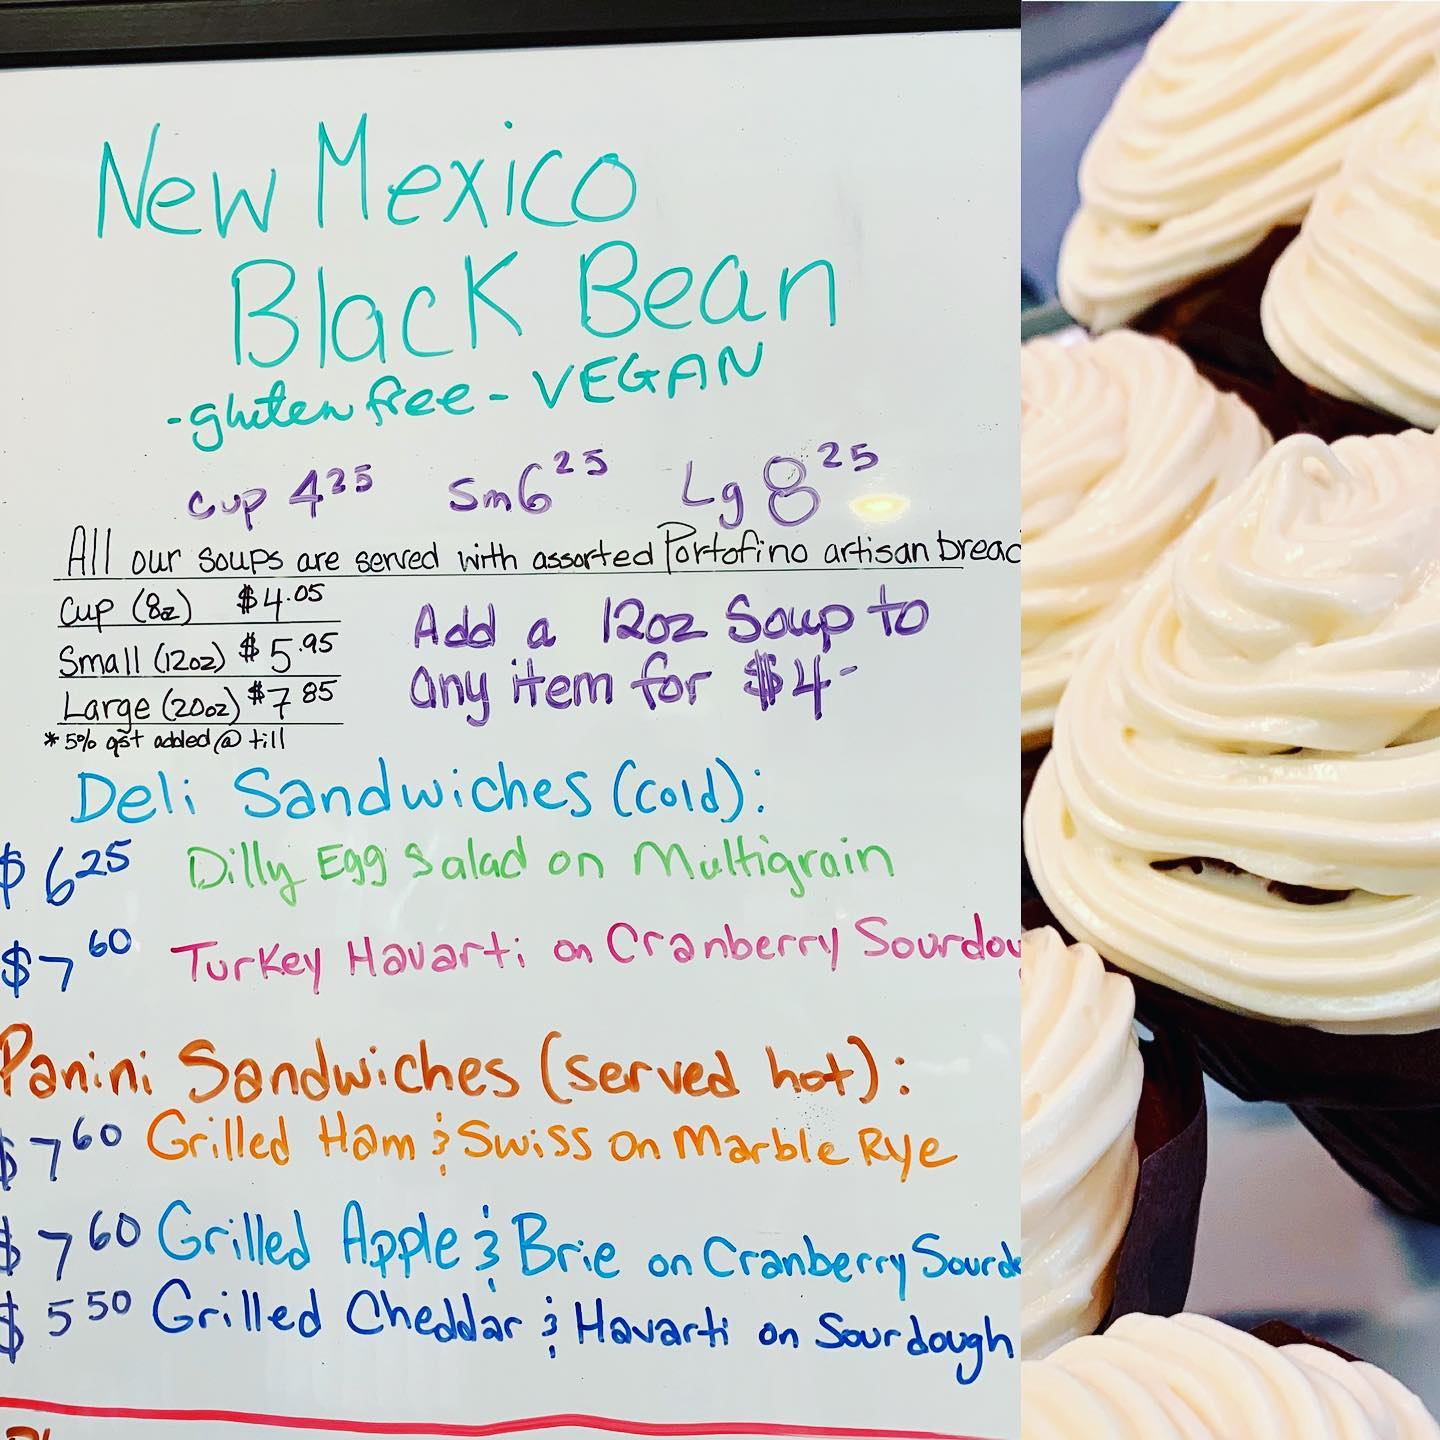 New Mexico
Black Bean
- gluten free - VEGAN
Cup 4 25 Sm 6 25 Lg 8 25
All our soups are served with assorted Portofino artisan bread
Cup (8oz) $4.05
Small (12oz) $5.95
Large (20oz) $7 85
* 5% gst added @ till
Add a 12oz Soup to
any item for $4-
Deli Sandwiches (cold):
$6 25 Dilly Egg Salad on Multigrain
$7 60 Turkey Havarti on Cranberry Sourdou
Panini Sandwiches (served hot):
$7 60 Grilled Ham & Swiss on Marble Rye
$7 60 Grilled Apple & Brie on Cranberry Sourdo
$5 50 Grilled Cheddar & Havarti on Sourdough